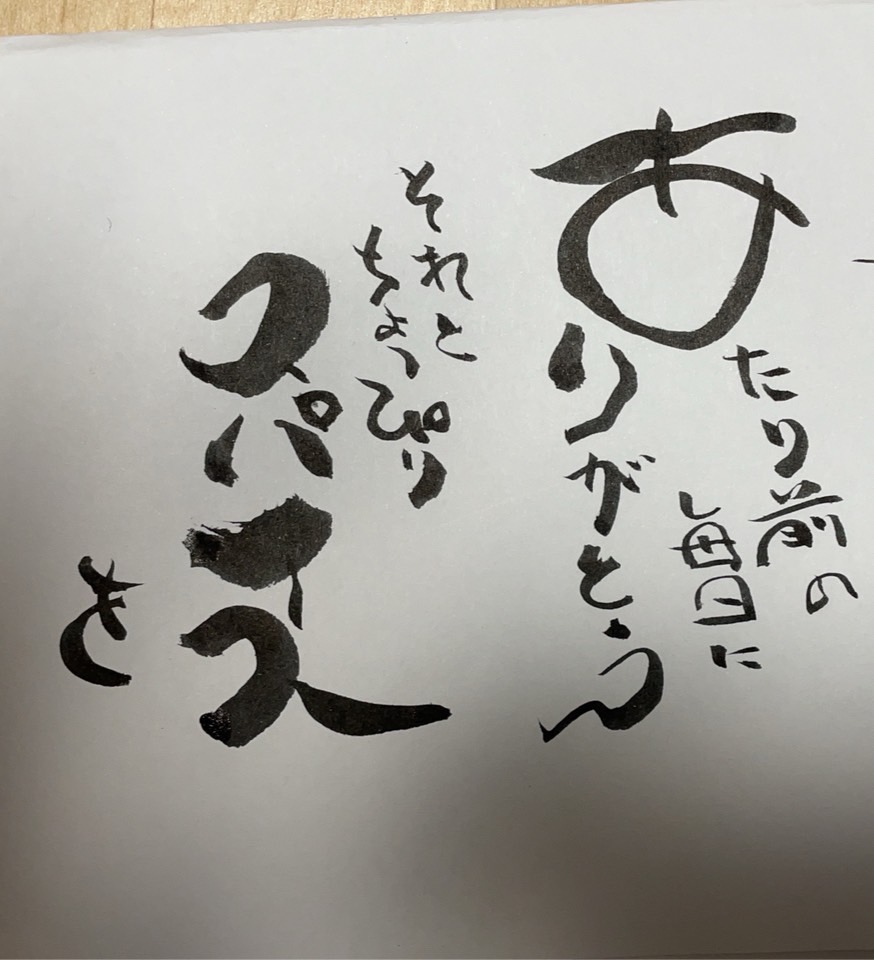 あたり前の
毎日に
ありがとう
それと
ちょっぴり
スパイス
を